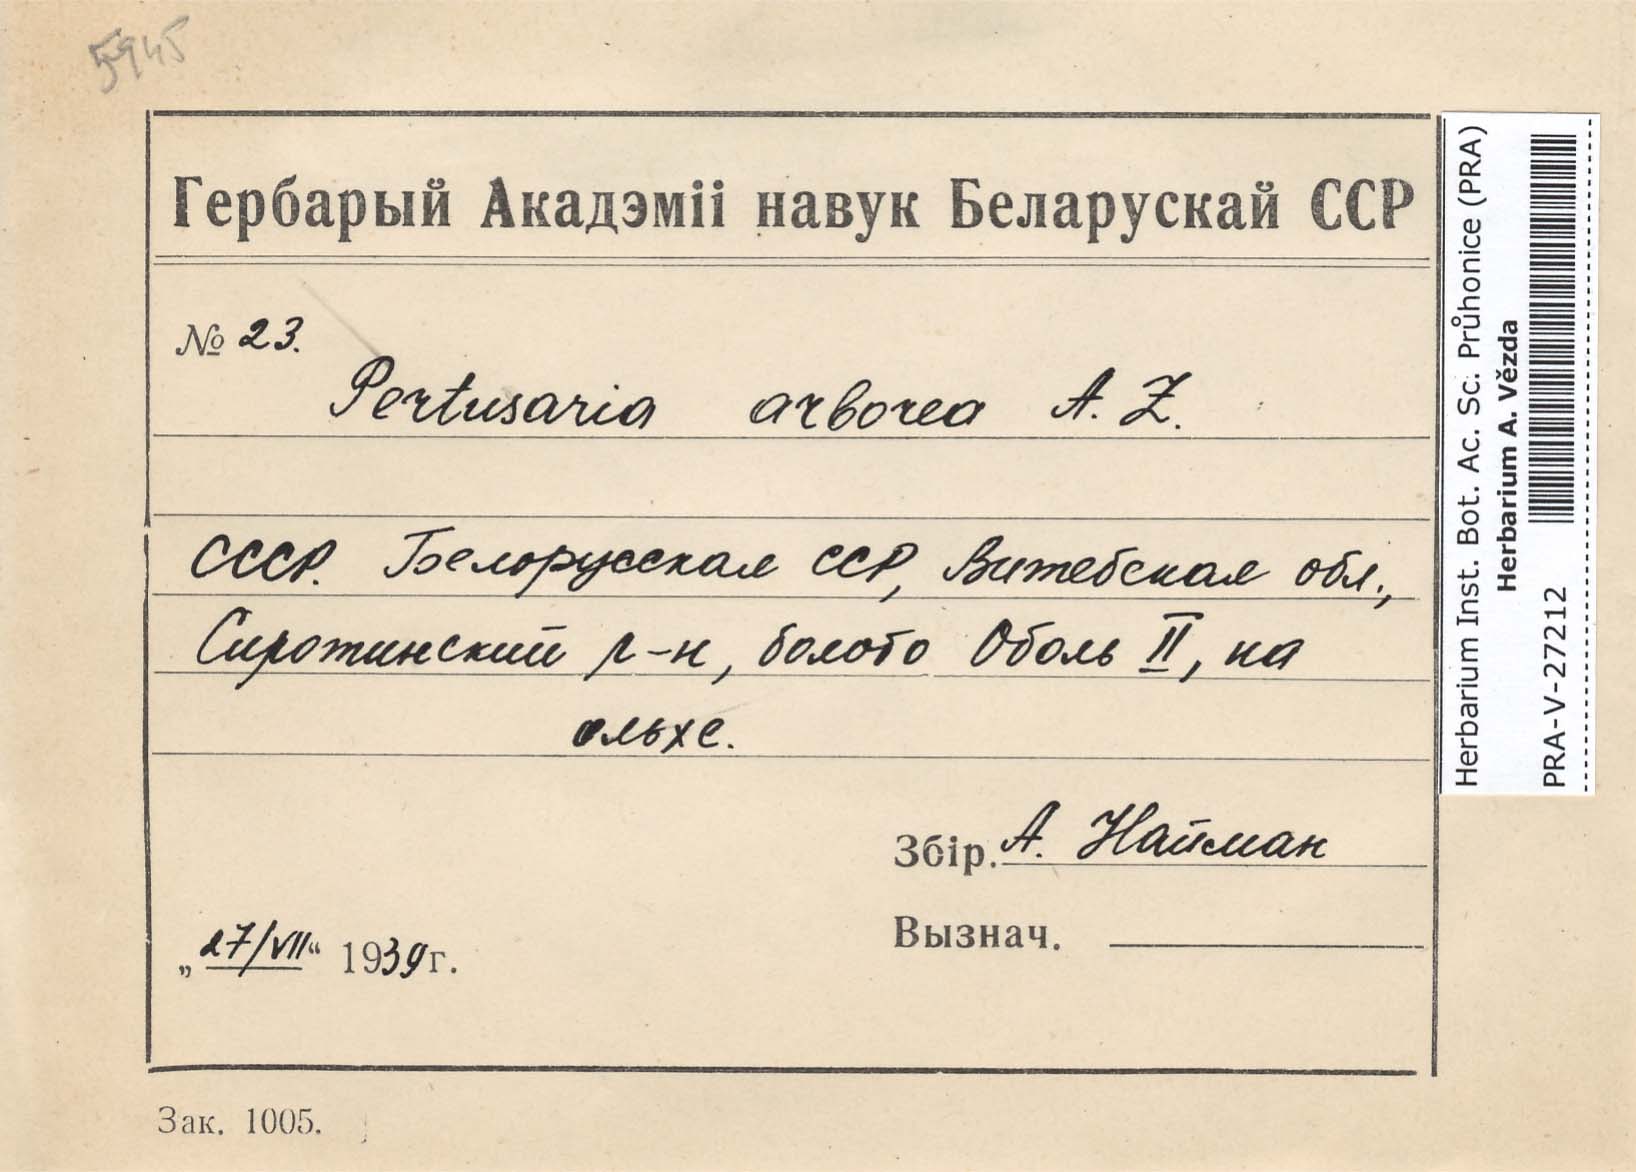 5945
Гербарый Акадэміі навук Беларускай ССР
№ 23.
Pertusaria arborea A. Z.
СССР. Белорусская ССР, Витебская обл.,
Сиротинский р-н, болото Оболь II, на
ольхе.
Збір. А. Найман
Вызнач.
„27/VII“ 1939 г.
Зак. 1005.
Herbarium Inst. Bot. Ac. Sc. Průhonice (PRA)
Herbarium A. Vězda
PRA-V-27212